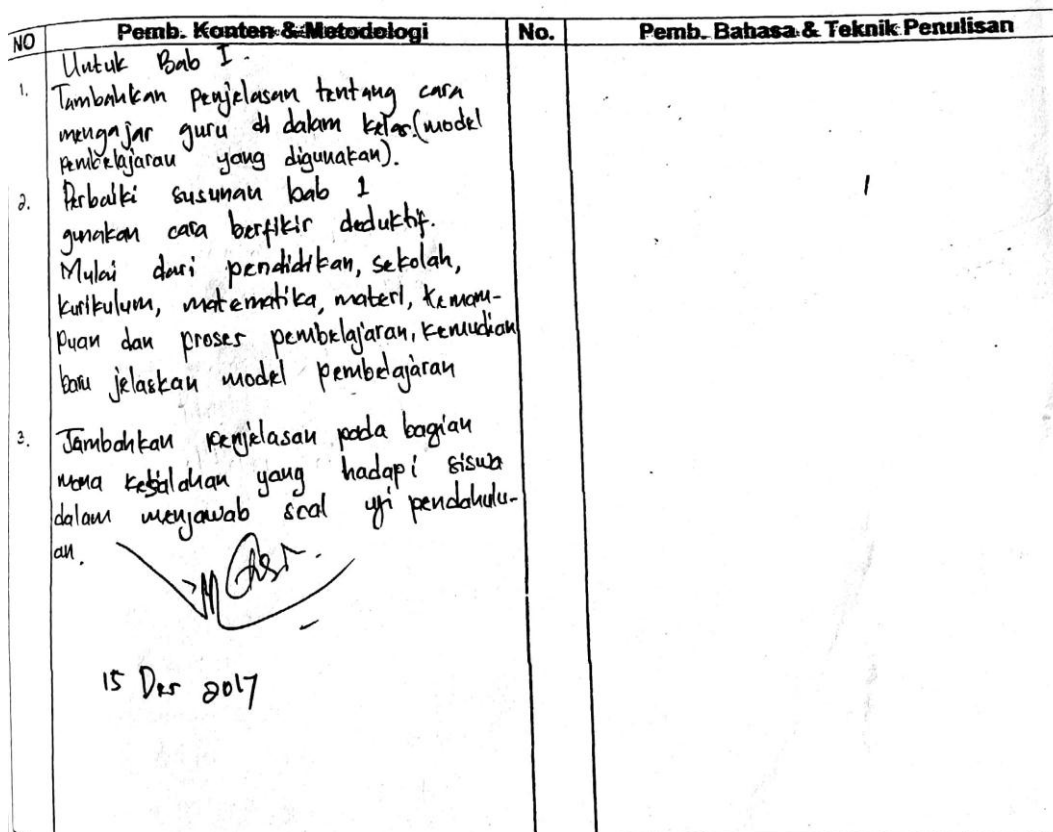 NO Pemb. Konten & Metodologi No. Pemb. Bahasa & Teknik Penulisan
Untuk Bab I.
1. Tambahkan penjelasan tentang cara
mengajar guru di dalam kelas (model
pembelajaran yang digunakan).
2. Perbaiki susunan bab 1
gunakan cara berfikir deduktif.
Mulai dari pendidikan, sekolah,
kurikulum, matematika, materi, kemam-
puan dan proses pembelajaran, kemudian
baru jelaskan model pembelajaran
3. Tambahkan penjelasan pada bagian
mana kesalahan yang hadapi siswa
dalam menjawab soal uji pendahulu-
an.
15 Des 2017